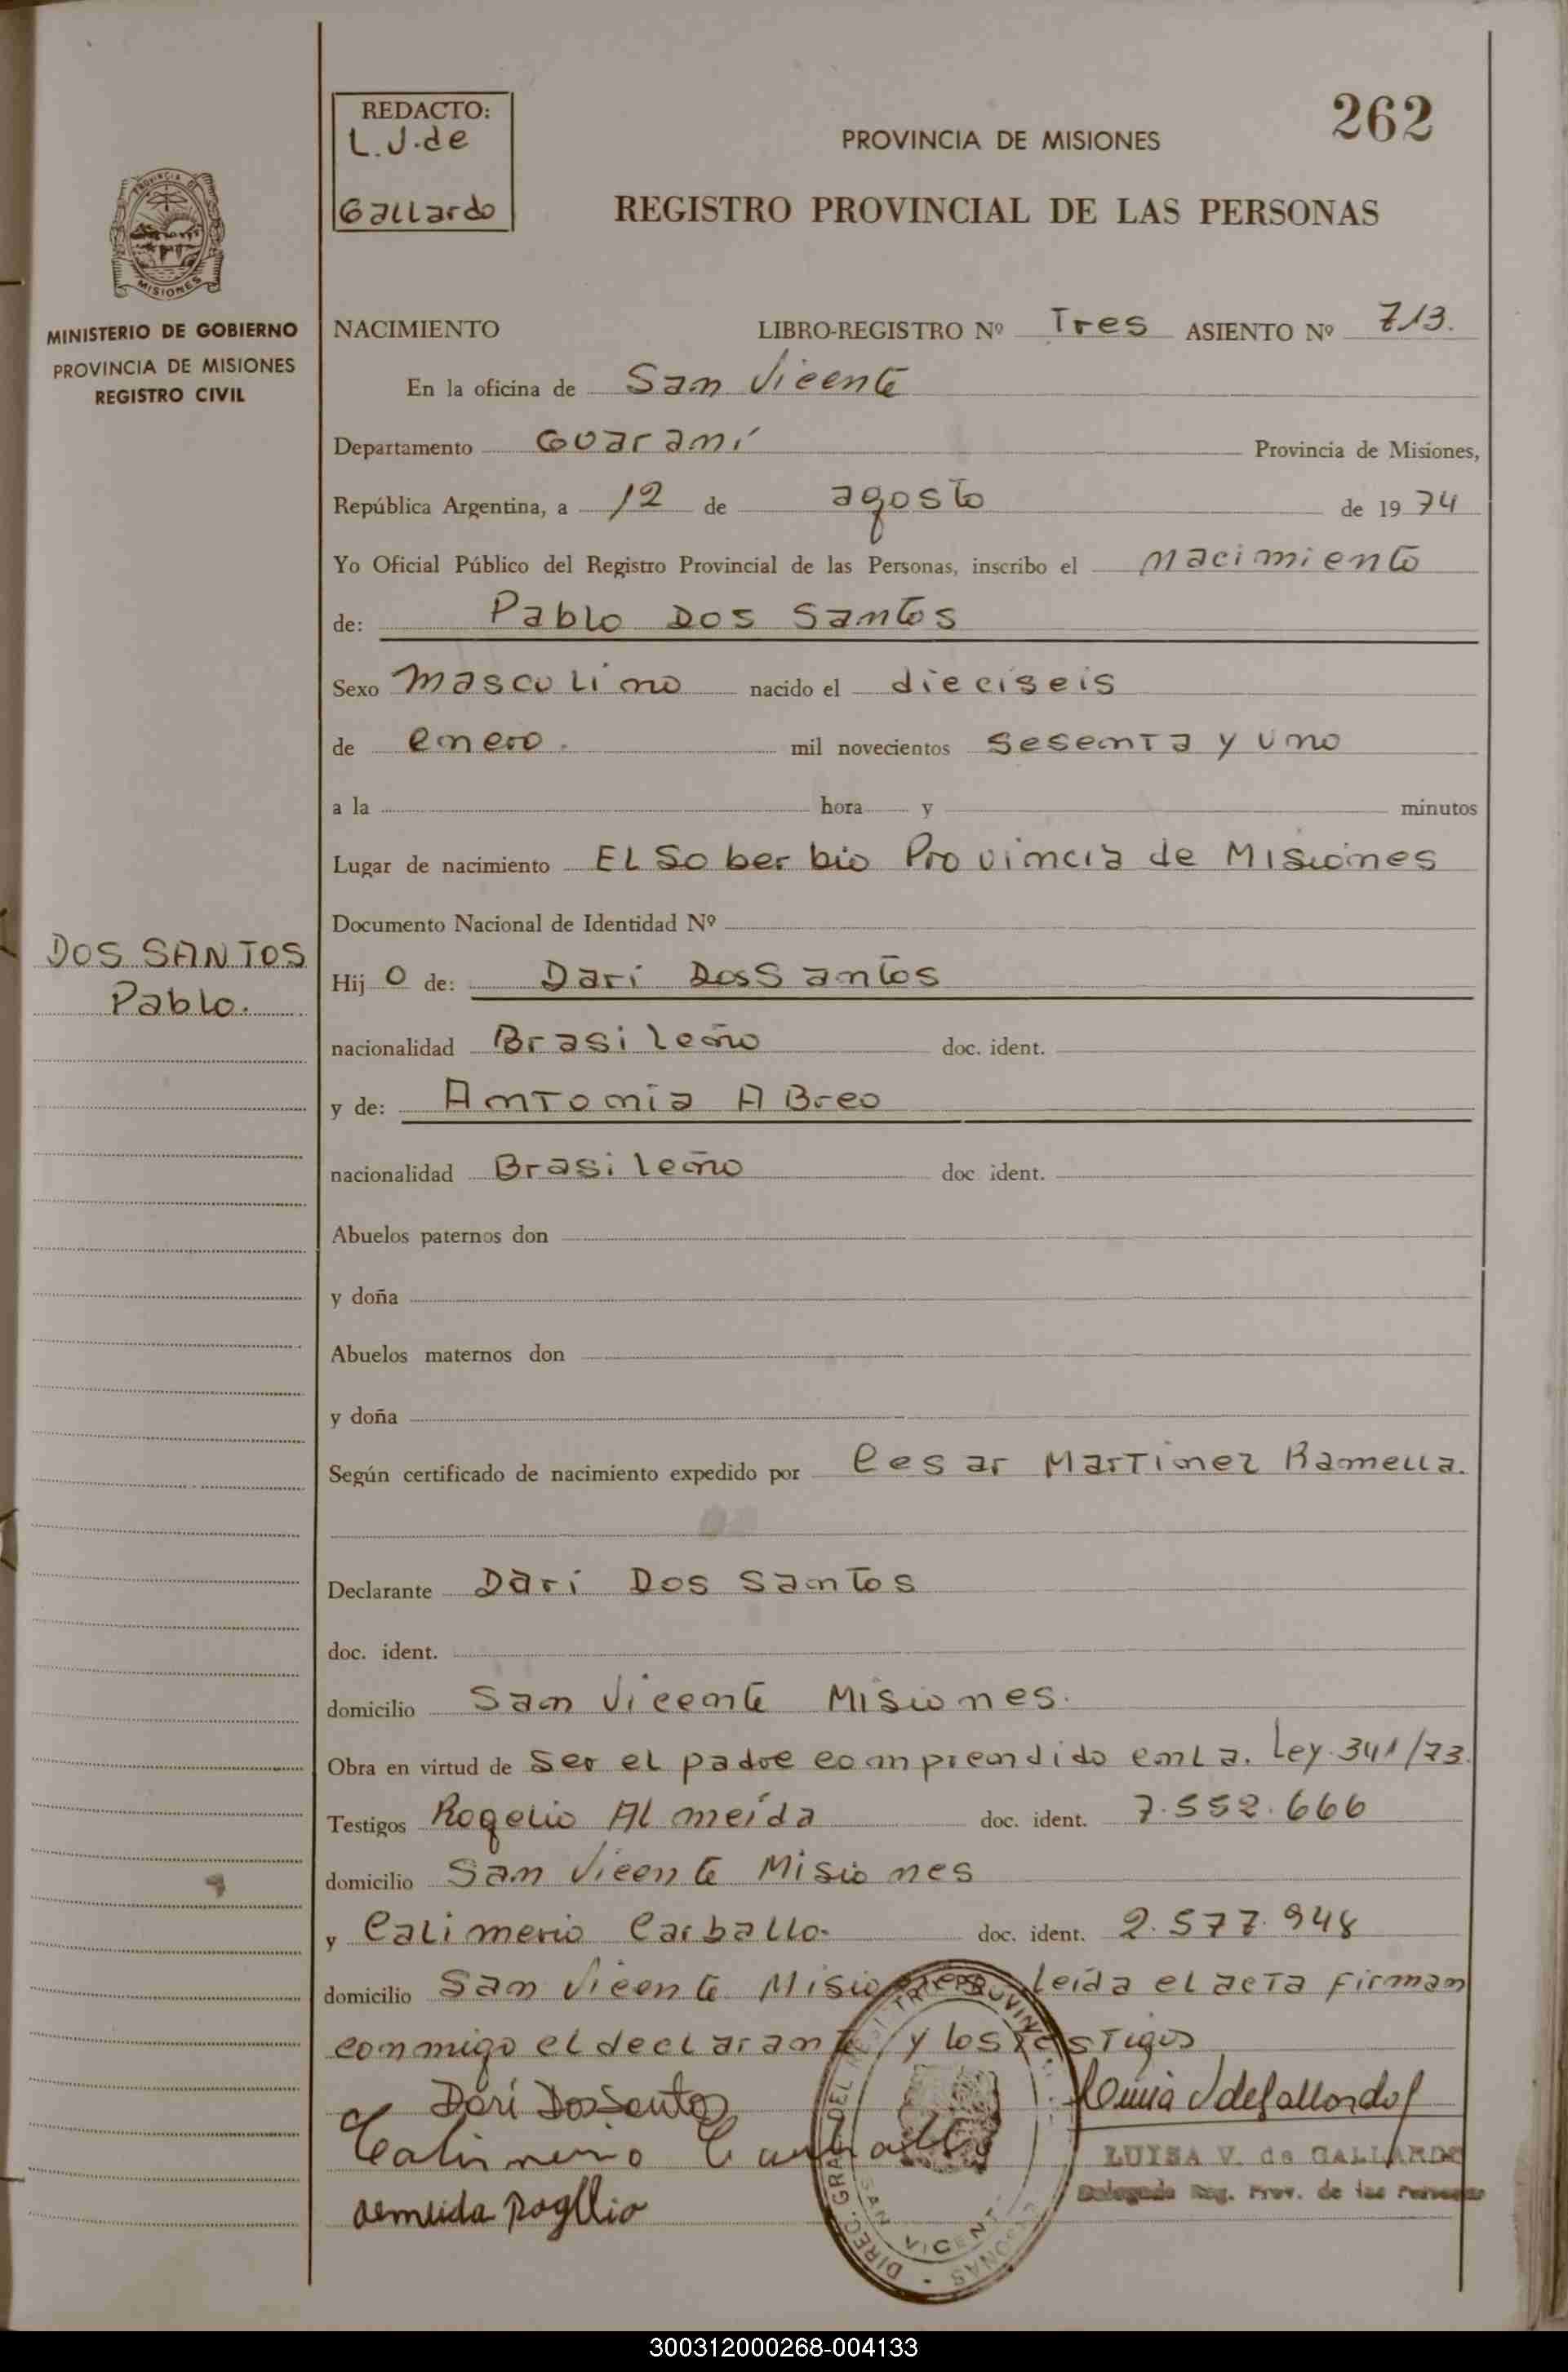 262
REDACTO:
L.J.de
Gallardo
PROVINCIA DE MISIONES
REGISTRO PROVINCIAL DE LAS PERSONAS
PROVINCIA DE
MISIONES
MINISTERIO DE GOBIERNO
PROVINCIA DE MISIONES
REGISTRO CIVIL
NACIMIENTO LIBRO-REGISTRO Nº Tres ASIENTO Nº 713.
En la oficina de San Vicente
Departamento Guaraní Provincia de Misiones,
República Argentina, a 12 de agosto de 1974
Yo Oficial Público del Registro Provincial de las Personas, inscribo el nacimiento
de: Pablo Dos Santos
Sexo masculino nacido el dieciseis
de enero. mil novecientos sesenta y uno
a la hora y minutos
Lugar de nacimiento El Soberbio Provincia de Misiones
Documento Nacional de Identidad Nº
DOS SANTOS
Pablo.
Hijo de: Dari Dos Santos
nacionalidad Brasileño doc. ident.
y de: Antonia Abreo
nacionalidad Brasileño doc. ident.
Abuelos paternos don
y doña
Abuelos maternos don
y doña
Según certificado de nacimiento expedido por Cesar Martinez Ramella.
Declarante Dari Dos Santos
doc. ident.
domicilio San Vicente Misiones.
Obra en virtud de ser el padre comprendido en la. Ley 341/73.
Testigos Rogelio Almeida doc. ident. 7.552.666
domicilio San Vicente Misiones
y Calimerio Carballo. doc. ident. 2.577.948
domicilio San Vicente Misiones leída el acta firman
conmigo el declarante y los testigos
Dari Dos Santos
Calimerio Carballo
Almeida Rogelio
Luisa V de Gallardo
LUISA V. de GALLARDO
Delegada Reg. Prov. de las Personas
DIREC. GRAL. DEL REGISTRO PROVINCIAL PERSONAS
SAN VICENTE
300312000268-004133